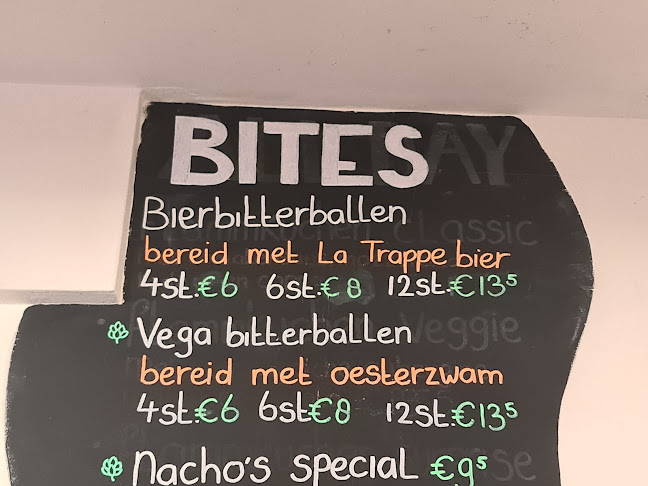 BITES
Bierbitterballen
bereid met La Trappe bier
4st.€6 6st.€8 12st.€13⁵
Vega bitterballen
bereid met oesterzwam
4st.€6 6st€8 12st.€13⁵
Nacho's special €9⁵